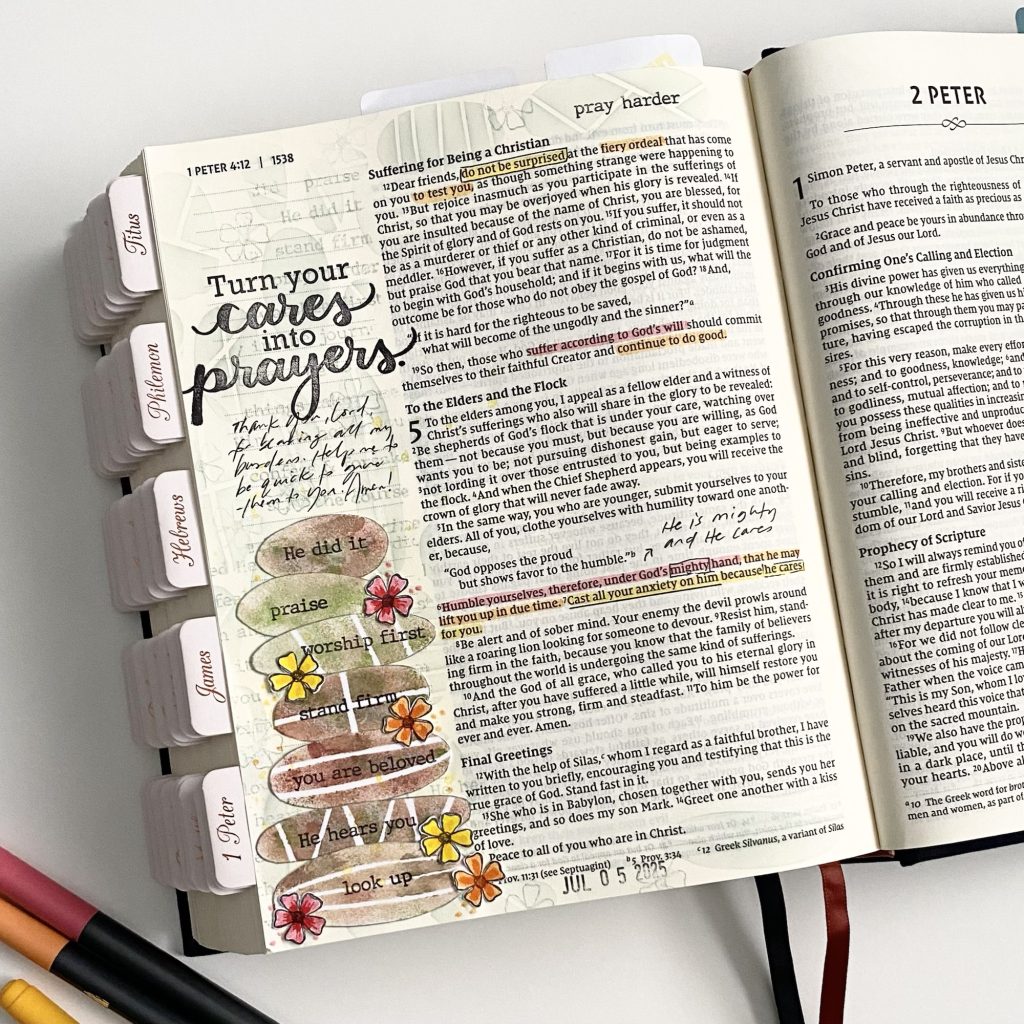 pray harder
1 PETER 4:12 | 1538
Suffering for Being a Christian
12Dear friends, do not be surprised at the fiery ordeal that has come
on you to test you, as though something strange were happening to
you. 13But rejoice inasmuch as you participate in the sufferings of
Christ, so that you may be overjoyed when his glory is revealed. 14If
you are insulted because of the name of Christ, you are blessed, for
the Spirit of glory and of God rests on you. 15If you suffer, it should not
be as a murderer or thief or any other kind of criminal, or even as a
meddler. 16However, if you suffer as a Christian, do not be ashamed,
but praise God that you bear that name. 17For it is time for judgment
to begin with God's household; and if it begins with us, what will the
outcome be for those who do not obey the gospel of God? 18And,
"If it is hard for the righteous to be saved,
what will become of the ungodly and the sinner?"a
19So then, those who suffer according to God's will should commit
themselves to their faithful Creator and continue to do good.
To the Elders and the Flock
5 To the elders among you, I appeal as a fellow elder and a witness of
Christ's sufferings who also will share in the glory to be revealed:
2Be shepherds of God's flock that is under your care, watching over
them—not because you must, but because you are willing, as God
wants you to be; not pursuing dishonest gain, but eager to serve;
3not lording it over those entrusted to you, but being examples to
the flock. 4And when the Chief Shepherd appears, you will receive the
crown of glory that will never fade away.
5In the same way, you who are younger, submit yourselves to your
elders. All of you, clothe yourselves with humility toward one anoth-
er, because,
"God opposes the proud
but shows favor to the humble."b
He is mighty
and He cares
6Humble yourselves, therefore, under God's mighty hand, that he may
lift you up in due time. 7Cast all your anxiety on him because he cares
for you.
8Be alert and of sober mind. Your enemy the devil prowls around
like a roaring lion looking for someone to devour. 9Resist him, stand-
ing firm in the faith, because you know that the family of believers
throughout the world is undergoing the same kind of sufferings.
10And the God of all grace, who called you to his eternal glory in
Christ, after you have suffered a little while, will himself restore you
and make you strong, firm and steadfast. 11To him be the power for
ever and ever. Amen.
Final Greetings
12With the help of Silas,c whom I regard as a faithful brother, I have
written to you briefly, encouraging you and testifying that this is the
true grace of God. Stand fast in it.
13She who is in Babylon, chosen together with you, sends you her
greetings, and so does my son Mark. 14Greet one another with a kiss
of love.
Peace to all of you who are in Christ.
Prov. 11:31 (see Septuagint) b5 Prov. 3:34 c12 Greek Silvanus, a variant of Silas
JUL 05 2025
Turn your
cares
into
prayers.
Thank you, Lord,
for bearing all my
burdens. Help me to
be quick to give
them to you. Amen!
He did it
praise
worship first
stand firm
you are beloved
He hears you
look up
Titus
Philemon
Hebrews
James
1 Peter
2 PETER
1 Simon Peter, a servant and apostle of Jesus Chr
To those who through the righteousness of
Jesus Christ have received a faith as precious as
2Grace and peace be yours in abundance throu
God and of Jesus our Lord.
Confirming One's Calling and Election
3His divine power has given us everything
through our knowledge of him who called
goodness. 4Through these he has given us hi
promises, so that through them you may pa
ture, having escaped the corruption in th
sires.
5For this very reason, make every effor
ness; and to goodness, knowledge; 6and
and to self-control, perseverance; and to
to godliness, mutual affection; and to
you possess these qualities in increasing
from being ineffective and unproduc
Lord Jesus Christ. 9But whoever does
and blind, forgetting that they have
sins.
10Therefore, my brothers and siste
your calling and election. For if you
stumble, 11and you will receive a ri
dom of our Lord and Savior Jesus
Prophecy of Scripture
12So I will always remind you of
them and are firmly established
it is right to refresh your memo
body, 14because I know that I w
Christ has made clear to me. 15
after my departure you will al
16For we did not follow cle
about the coming of our Lord
witnesses of his majesty. 17H
Father when the voice came
"This is my Son, whom I lov
selves heard this voice that
on the sacred mountain.
19We also have the prop
liable, and you will do w
in a dark place, until th
your hearts. 20Above al
a10 The Greek word for broth
men and women, as part of